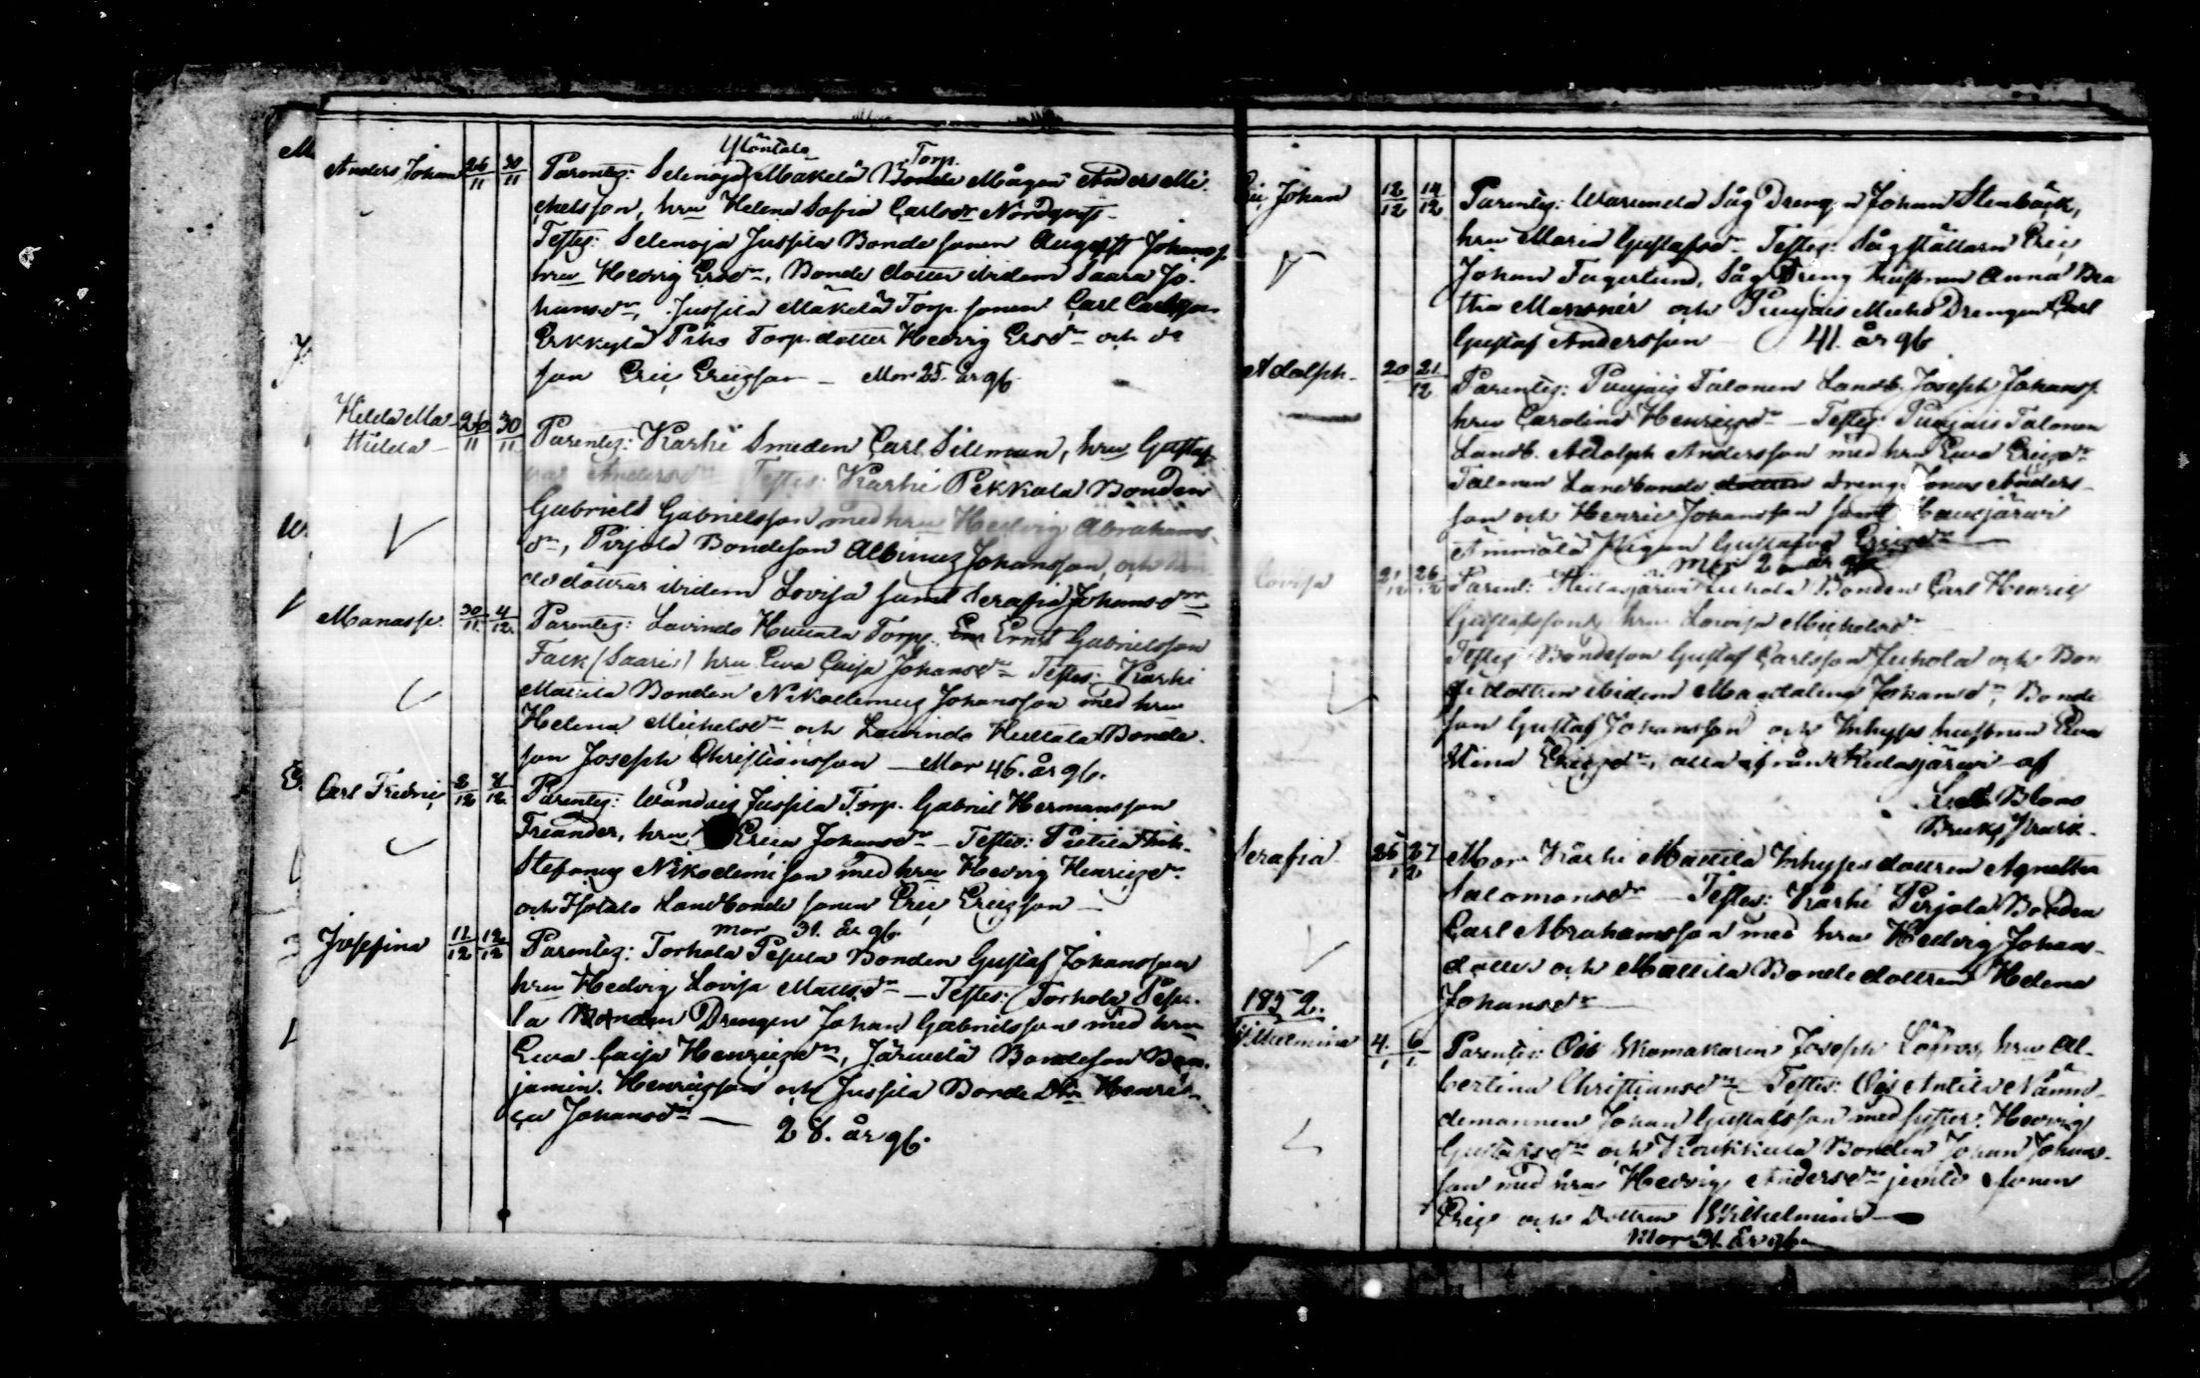 Ylöntalo Torp.
Anders Johan 26/11 30/11 Parentes: Selenoja Mäkelä Bonde Mågen Anders Mi-
chelsson, hru Helena Sofia Carlsdr Nordqvist
Testes: Selenoja Jussila Bonde sonen August Johanss.
hru Hedvig Ersdr, Bonde dotter ibidem Saara Jo-
hansdr, Jussila Mäkelä Torp. sonen Carl Carlsson
Erkkylä Piho Torp. dotter Hedvig Ersdr och do
son Eric Ericsson — Mor 25. år gl.
Hilda Ma-
thilda — 26/11 30/11 Parentes: Karhi Smeden Carl Sillman, hru Gustaf-
va Andersdr Testes: Karhi Pekkala Bonden
Gabriel Gabrielsson med hru Hedvig Abrahams-
dr, Pirjola Bondeson Albinus Johansson, och
dottrar ibidem Lovisa samt Serafia Johansdr
Manasse. 30/11 4/12 Parentes: Lavindo Huttala Torp. Ernst Gabrielsson
Falk (Saari) hru Eva Caisa Johansdr Testes: Karhi
Mattila Bonden Nikodemus Johansson med hru
Helena Michelsdr och Lavindo Huttala Bonde-
son Joseph Christiansson — Mor 46. år gl.
Carl Fredric 2/12 4/12 Parentes: Jussila Torp. Gabriel Hermansson
Friander, hru Erica Johansdr — Testes:
Stefanus Nikodemisson med hru Hedvig Henricsdr
och Isotalo Landbonde sonen Eric Ericsson —
mor 31. år gl.
Josefina 11/12 12/12 Parentes: Torhola Pesula Bonden Gustaf Johansson
hru Hedvig Lovisa Mattsdr — Testes: Torhola Pesu-
la Drengen Johan Gabrielsson med hru
Eva Caisa Henricsdr, Järvelä Bondeson Ben-
jamin Henricsson och Jussila Bonde Dtr Henri-
ca Johansdr —
28. år gl.
Eric Johan 12/12 14/12 Parentes: Såg Drengen Johan Stenbäck,
hru Maria Gustafsdr Testes: Sågställaren Eric
Johan Fagerlund, Såg Dreng hustrun Anna Bea
tha Mansnér och Drengen Carl
Gustaf Andersson 41. år gl
Adolph — 20 21/12 Parentes: Talonen Landb. Joseph Johanss.
hru Carolina Henricsdr — Testes: Talonen
Landb. Adolph Andersson med hru Eva Ericsdr
Talonen Landbonde dreng Jonas Anders-
son och Henric Johansson samt Hausjärvi
Pigan Gustafva Ericsdr
Mor år gl
Lovisa 21/12 26/12 Parent: Bonden Carl Henric
Gustafsson, hru Lovisa Michelsdr
Testes Bondeson Gustaf Carlsson Juhola och Bon
de dottren ibidem Magdalena Johansdr, Bonde
son Gustaf Johansson och Inhyses hustrun Eva
Stina Ericsdr, alla ifrån af
Blom
Bruks
Serafia — 25 27 Mor Karhi Mattila Inhyses dottren Agnetha
Salomonsdr — Testes: Karhi Pirjola Bonden
Carl Abrahamsson med hru Hedvig Johans-
dotter och Mattila Bonde dottren Helena
Johansdr —
1852.
Wilhelmina 4/1 6/1 Parentes: Ois Skomakaren Joseph Löfros, hru Al-
bertina Christiansdr — Testes: Ois Anttila Nämn-
demannen Johan Gustafsson med syster Hedvig
Gustafsdr och Koukkula Bonden Johan Johans-
son med hru Hedvig Andersdr jemte sonen
Eric och dottren Wilhelmina —
Mor 31. år gl.